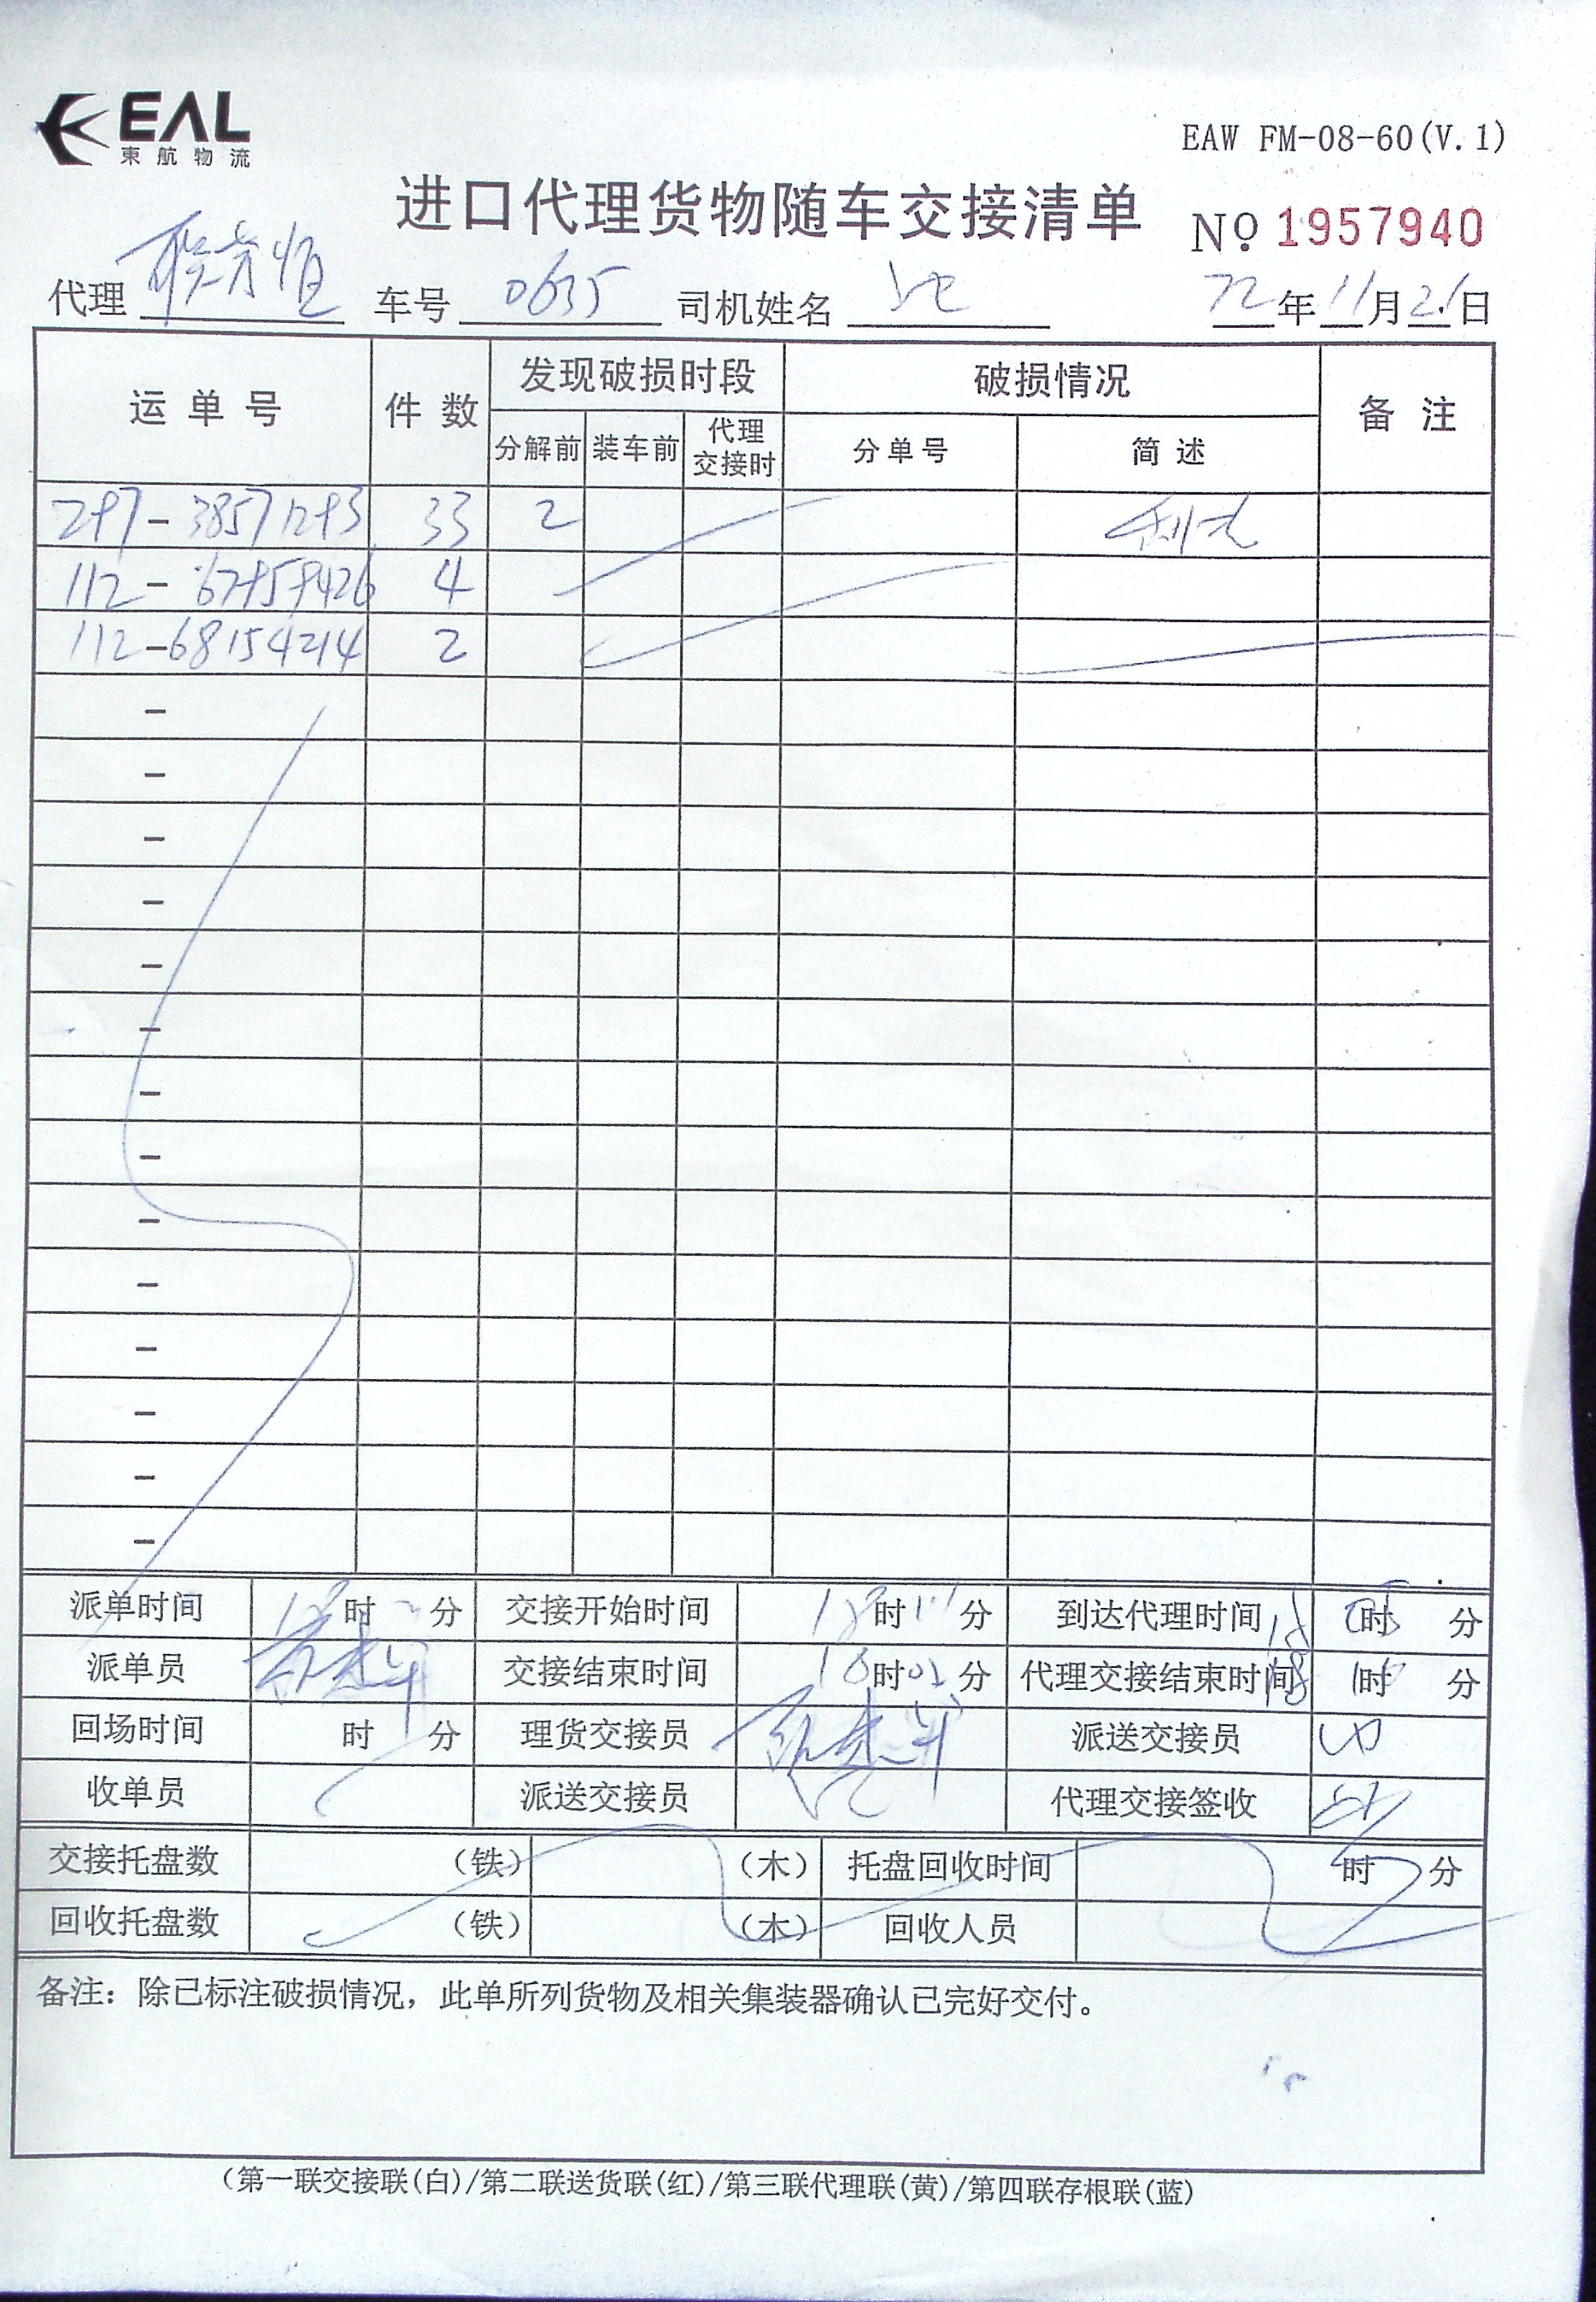 EAL
東航物流
EAW FM-08-60(V.1)
进口代理货物随车交接清单
№ 1957940
代理 车号 0635 司机姓名 22年11月21日
运单号 件数 发现破损时段 破损情况 备注
分解前 装车前 代理交接时 分单号 简述
297-38571293 33 2
112-67959426 4
112-68154214 2
-
-
-
-
-
-
-
-
-
-
-
-
-
-
派单时间 时 分 交接开始时间 18时 分 到达代理时间 时 分
派单员 交接结束时间 时 分 代理交接结束时间 时 分
回场时间 时 分 理货交接员 派送交接员
收单员 派送交接员 代理交接签收
交接托盘数 (铁) (木) 托盘回收时间 时 分
回收托盘数 (铁) (木) 回收人员
备注：除已标注破损情况，此单所列货物及相关集装器确认已完好交付。
(第一联交接联(白)/第二联送货联(红)/第三联代理联(黄)/第四联存根联(蓝)